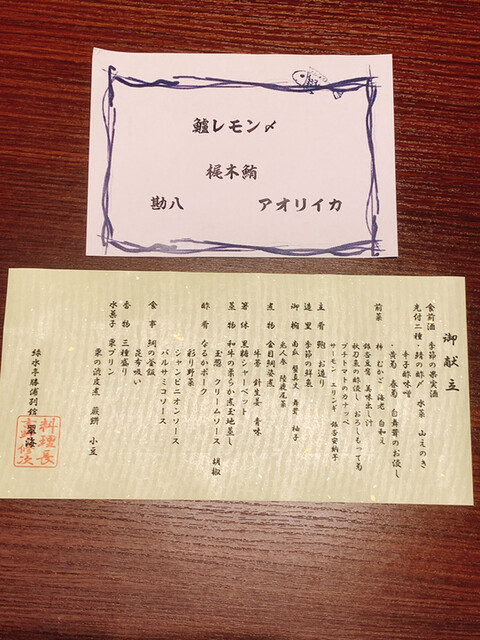 鱸レモン〆
梶木鮪
勘八 アオリイカ
御献立
食前酒 季節の果実酒
先付二種・鯖の酢〆 水菜 山えのき
辛子酢味噌
・黄菊 春菊 白舞茸のお浸し
前菜 柿 むかご 海老 白和え
銀杏豆腐 美味出し汁
秋刀魚の酢浸し おろしもって菊
プチトマトのカナッペ
サーモン エリンギ 銀杏安納芋
主肴 鮑のお造り
造里 季節の鮮魚
御椀 南瓜 蟹真丈 舞茸 柚子
光人参 陸蓮尾菜
煮物 金目鯛姿煮
牛蒡 針生姜 青味
箸休 黒糖シャーベット
蒸物 和牛の柔らか煮玉地蒸し
玉葱 クリームソース 胡椒
酢肴 なるかポーク
彩り野菜
シャンピニオンソース
バルサミコソース
食事 鯛の釜飯
昆布吸い
香物 三種盛り
水菓子 栗プリン
栗の渋皮煮 蕨餅 小豆
緑水亭勝浦別館 翠海
料理長